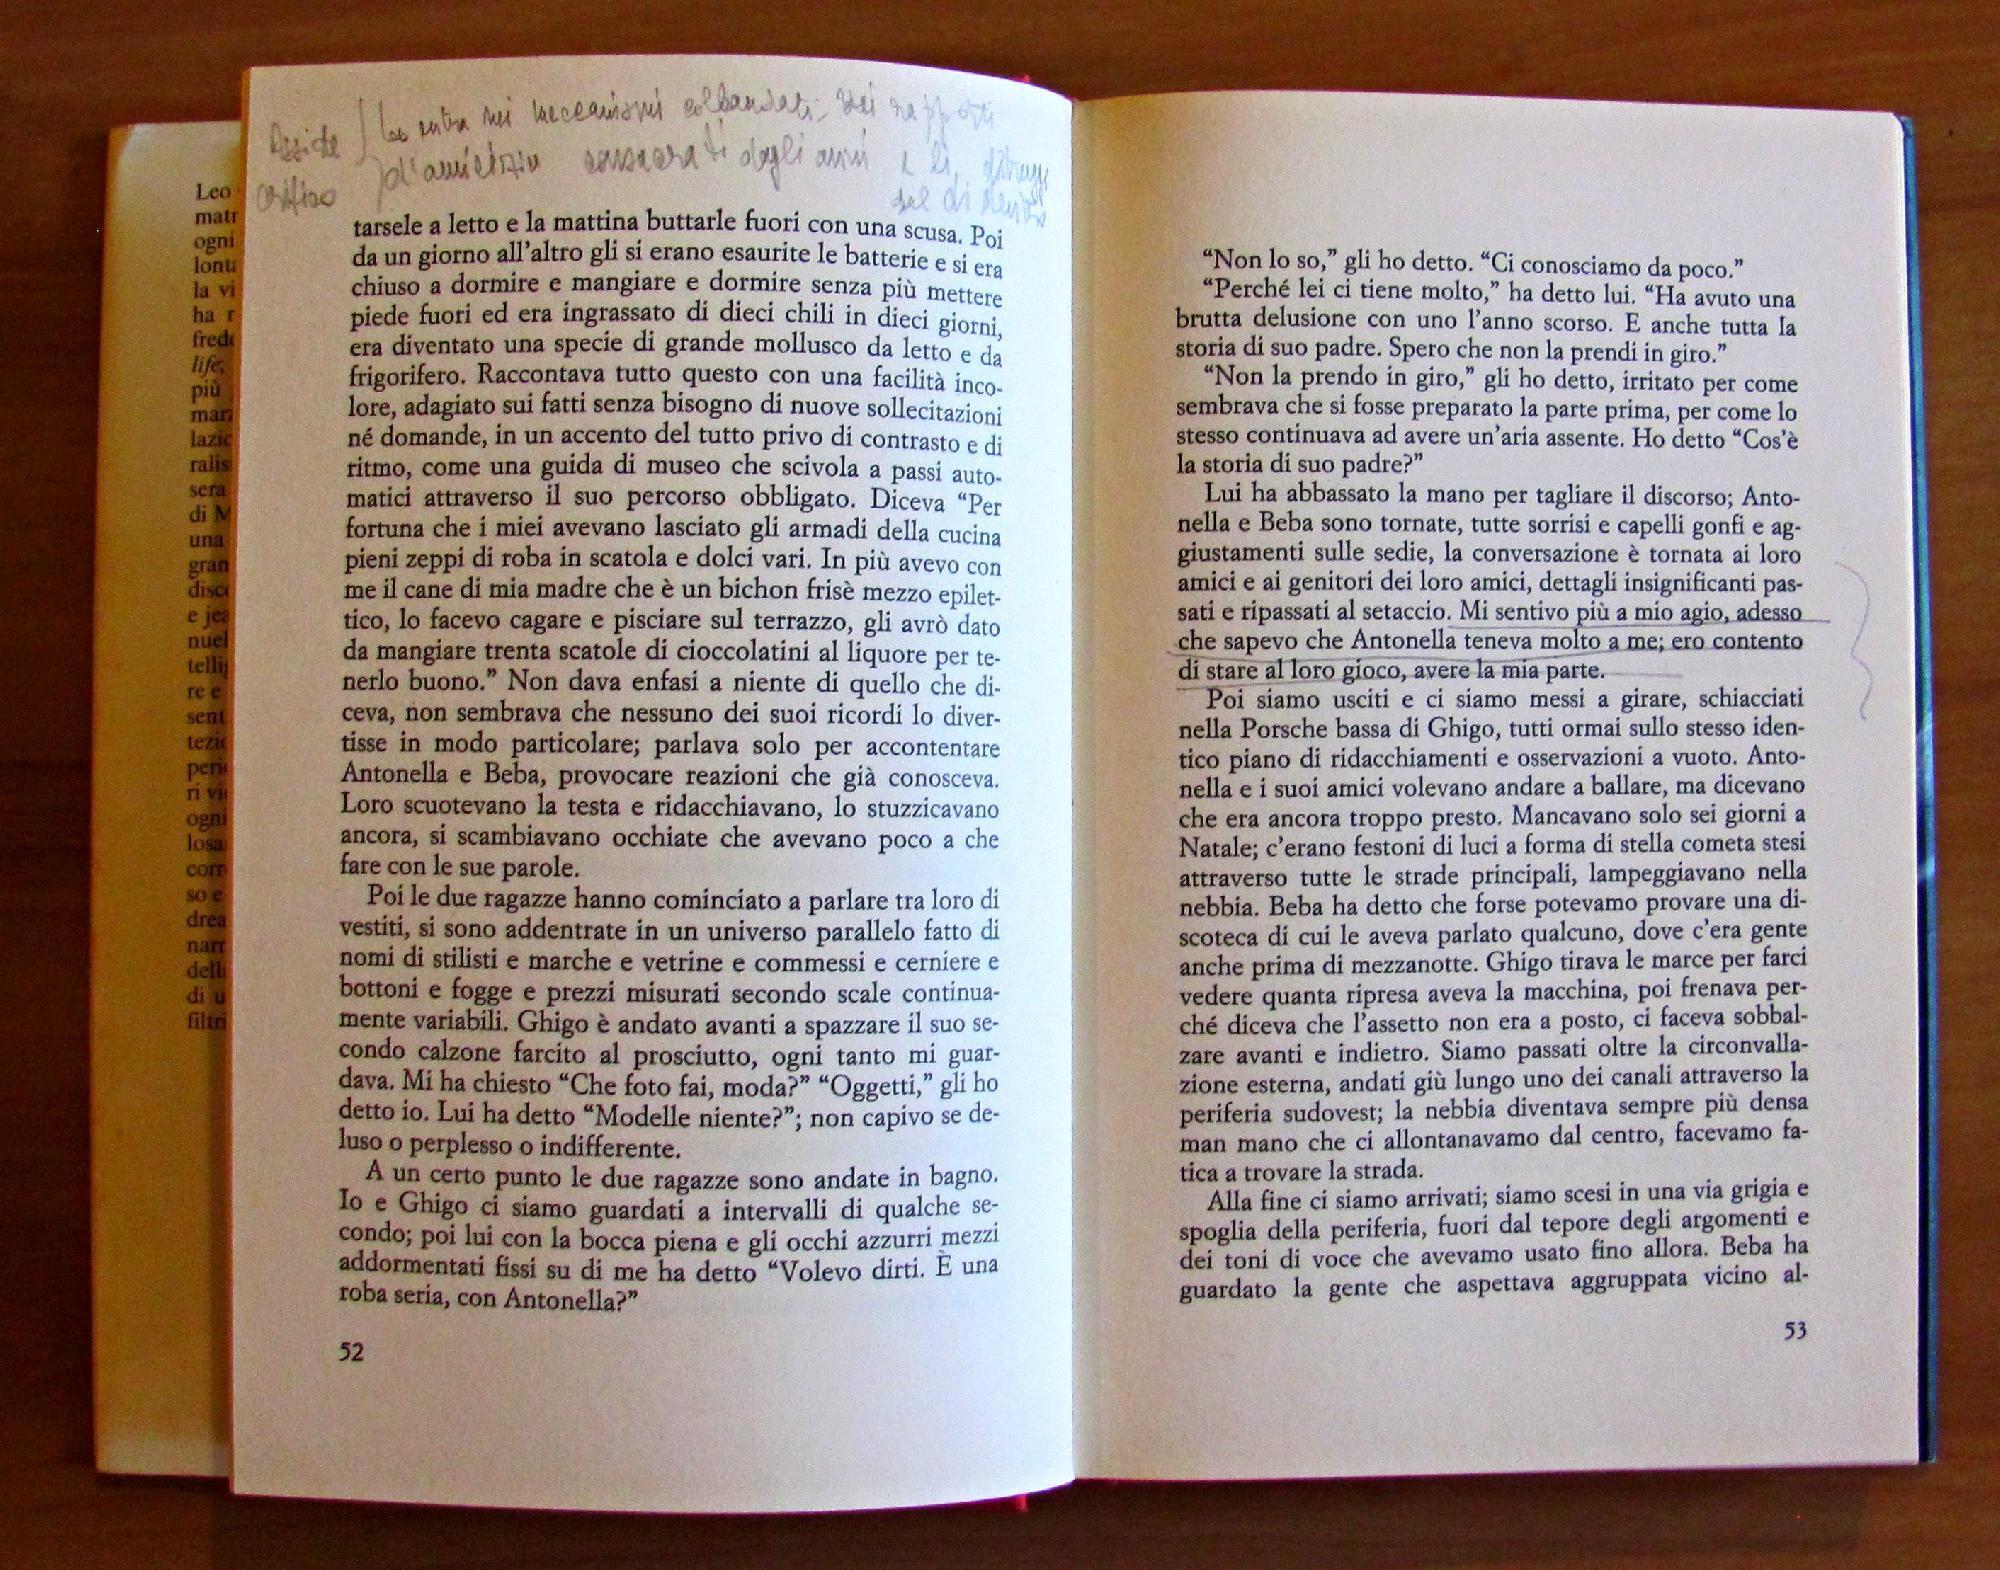 Leo
matr
ogni
la vi
ha r
life,
più
lazic
ralis
sera
di M
una
gran
disco
e jea
nuel
tellig
re e
sent
tezic
peric
ri vic
ogni
losa
corr
so e
drea
narr
della
di u
filtri
nei meccanismi collaudati, nei rapporti
d'amicizia consacrati dagli anni e li
dal di dentro
tarsele a letto e la mattina buttarle fuori con una scusa. Poi
da un giorno all'altro gli si erano esaurite le batterie e si era
chiuso a dormire e mangiare e dormire senza più mettere
piede fuori ed era ingrassato di dieci chili in dieci giorni,
era diventato una specie di grande mollusco da letto e da
frigorifero. Raccontava tutto questo con una facilità inco-
lore, adagiato sui fatti senza bisogno di nuove sollecitazioni
né domande, in un accento del tutto privo di contrasto e di
ritmo, come una guida di museo che scivola a passi auto-
matici attraverso il suo percorso obbligato. Diceva “Per
fortuna che i miei avevano lasciato gli armadi della cucina
pieni zeppi di roba in scatola e dolci vari. In più avevo con
me il cane di mia madre che è un bichon frisè mezzo epilet-
tico, lo facevo cagare e pisciare sul terrazzo, gli avrò dato
da mangiare trenta scatole di cioccolatini al liquore per te-
nerlo buono.” Non dava enfasi a niente di quello che di-
ceva, non sembrava che nessuno dei suoi ricordi lo diver-
tisse in modo particolare; parlava solo per accontentare
Antonella e Beba, provocare reazioni che già conosceva.
Loro scuotevano la testa e ridacchiavano, lo stuzzicavano
ancora, si scambiavano occhiate che avevano poco a che
fare con le sue parole.
Poi le due ragazze hanno cominciato a parlare tra loro di
vestiti, si sono addentrate in un universo parallelo fatto di
nomi di stilisti e marche e vetrine e commessi e cerniere e
bottoni e fogge e prezzi misurati secondo scale continua-
mente variabili. Ghigo è andato avanti a spazzare il suo se-
condo calzone farcito al prosciutto, ogni tanto mi guar-
dava. Mi ha chiesto “Che foto fai, moda?” “Oggetti,” gli ho
detto io. Lui ha detto “Modelle niente?”; non capivo se de-
luso o perplesso o indifferente.
A un certo punto le due ragazze sono andate in bagno.
Io e Ghigo ci siamo guardati a intervalli di qualche se-
condo; poi lui con la bocca piena e gli occhi azzurri mezzi
addormentati fissi su di me ha detto “Volevo dirti. È una
roba seria, con Antonella?”
52
“Non lo so,” gli ho detto. “Ci conosciamo da poco.”
“Perché lei ci tiene molto,” ha detto lui. “Ha avuto una
brutta delusione con uno l'anno scorso. E anche tutta la
storia di suo padre. Spero che non la prendi in giro.”
“Non la prendo in giro,” gli ho detto, irritato per come
sembrava che si fosse preparato la parte prima, per come lo
stesso continuava ad avere un'aria assente. Ho detto “Cos'è
la storia di suo padre?”
Lui ha abbassato la mano per tagliare il discorso; Anto-
nella e Beba sono tornate, tutte sorrisi e capelli gonfi e ag-
giustamenti sulle sedie, la conversazione è tornata ai loro
amici e ai genitori dei loro amici, dettagli insignificanti pas-
sati e ripassati al setaccio. Mi sentivo più a mio agio, adesso
che sapevo che Antonella teneva molto a me; ero contento
di stare al loro gioco, avere la mia parte.
Poi siamo usciti e ci siamo messi a girare, schiacciati
nella Porsche bassa di Ghigo, tutti ormai sullo stesso iden-
tico piano di ridacchiamenti e osservazioni a vuoto. Anto-
nella e i suoi amici volevano andare a ballare, ma dicevano
che era ancora troppo presto. Mancavano solo sei giorni a
Natale; c'erano festoni di luci a forma di stella cometa stesi
attraverso tutte le strade principali, lampeggiavano nella
nebbia. Beba ha detto che forse potevamo provare una di-
scoteca di cui le aveva parlato qualcuno, dove c'era gente
anche prima di mezzanotte. Ghigo tirava le marce per farci
vedere quanta ripresa aveva la macchina, poi frenava per-
ché diceva che l'assetto non era a posto, ci faceva sobbal-
zare avanti e indietro. Siamo passati oltre la circonvalla-
zione esterna, andati giù lungo uno dei canali attraverso la
periferia sudovest; la nebbia diventava sempre più densa
man mano che ci allontanavamo dal centro, facevamo fa-
tica a trovare la strada.
Alla fine ci siamo arrivati; siamo scesi in una via grigia e
spoglia della periferia, fuori dal tepore degli argomenti e
dei toni di voce che avevamo usato fino allora. Beba ha
guardato la gente che aspettava aggruppata vicino al-
53